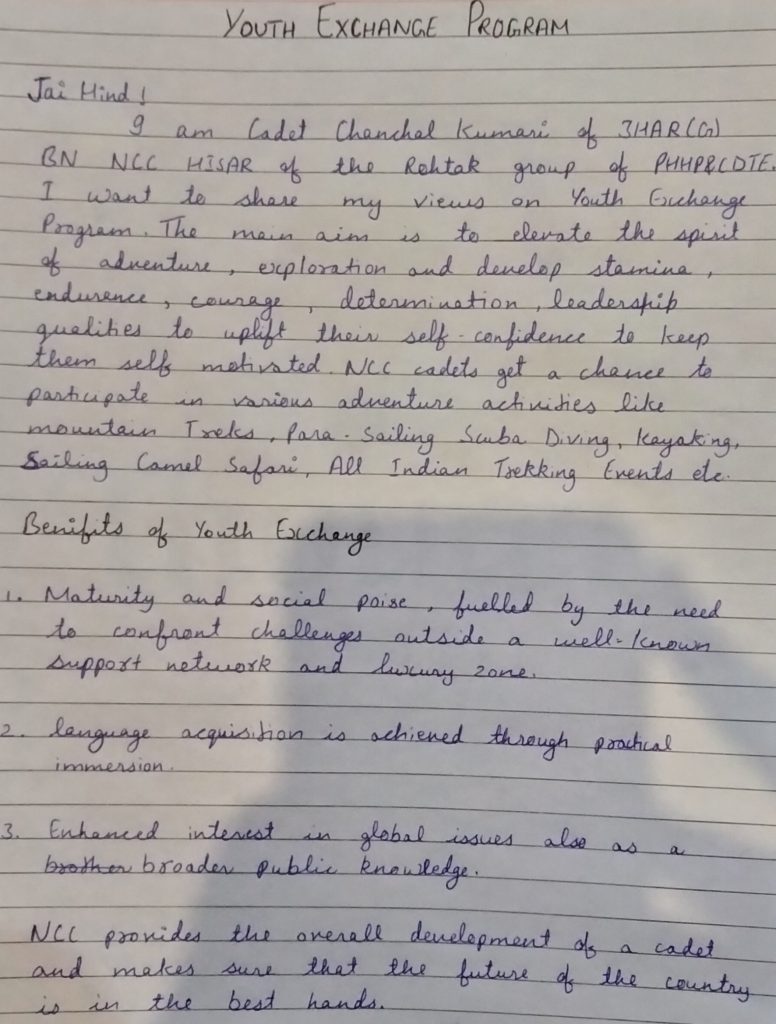 YOUTH EXCHANGE PROGRAM
Jai Hind!
I am Cadet Chanchal Kumari of 3HAR(G)
BN NCC HISAR of the Rohtak group of PHHP&CDTE.
I want to share my views on Youth Exchange
Program. The main aim is to elevate the spirit
of adventure, exploration and develop stamina,
endurence, courage, determination, leadership
qualities to uplift their self-confidence to keep
them self motivated. NCC cadets get a chance to
participate in various adventure activities like
mountain Treks, Para-Sailing Scuba Diving, Kayaking,
Sailing Camel Safari, All Indian Trekking Events etc.
Benifits of Youth Exchange
1. Maturity and social poise, fuelled by the need
to confront challenges outside a well-known
support network and luxury zone.
2. language acquisition is achieved through practical
immersion.
3. Enhanced interest in global issues also as a
brother broader public knowledge.
NCC provides the overall development of a cadet
and makes sure that the future of the country
is in the best hands.